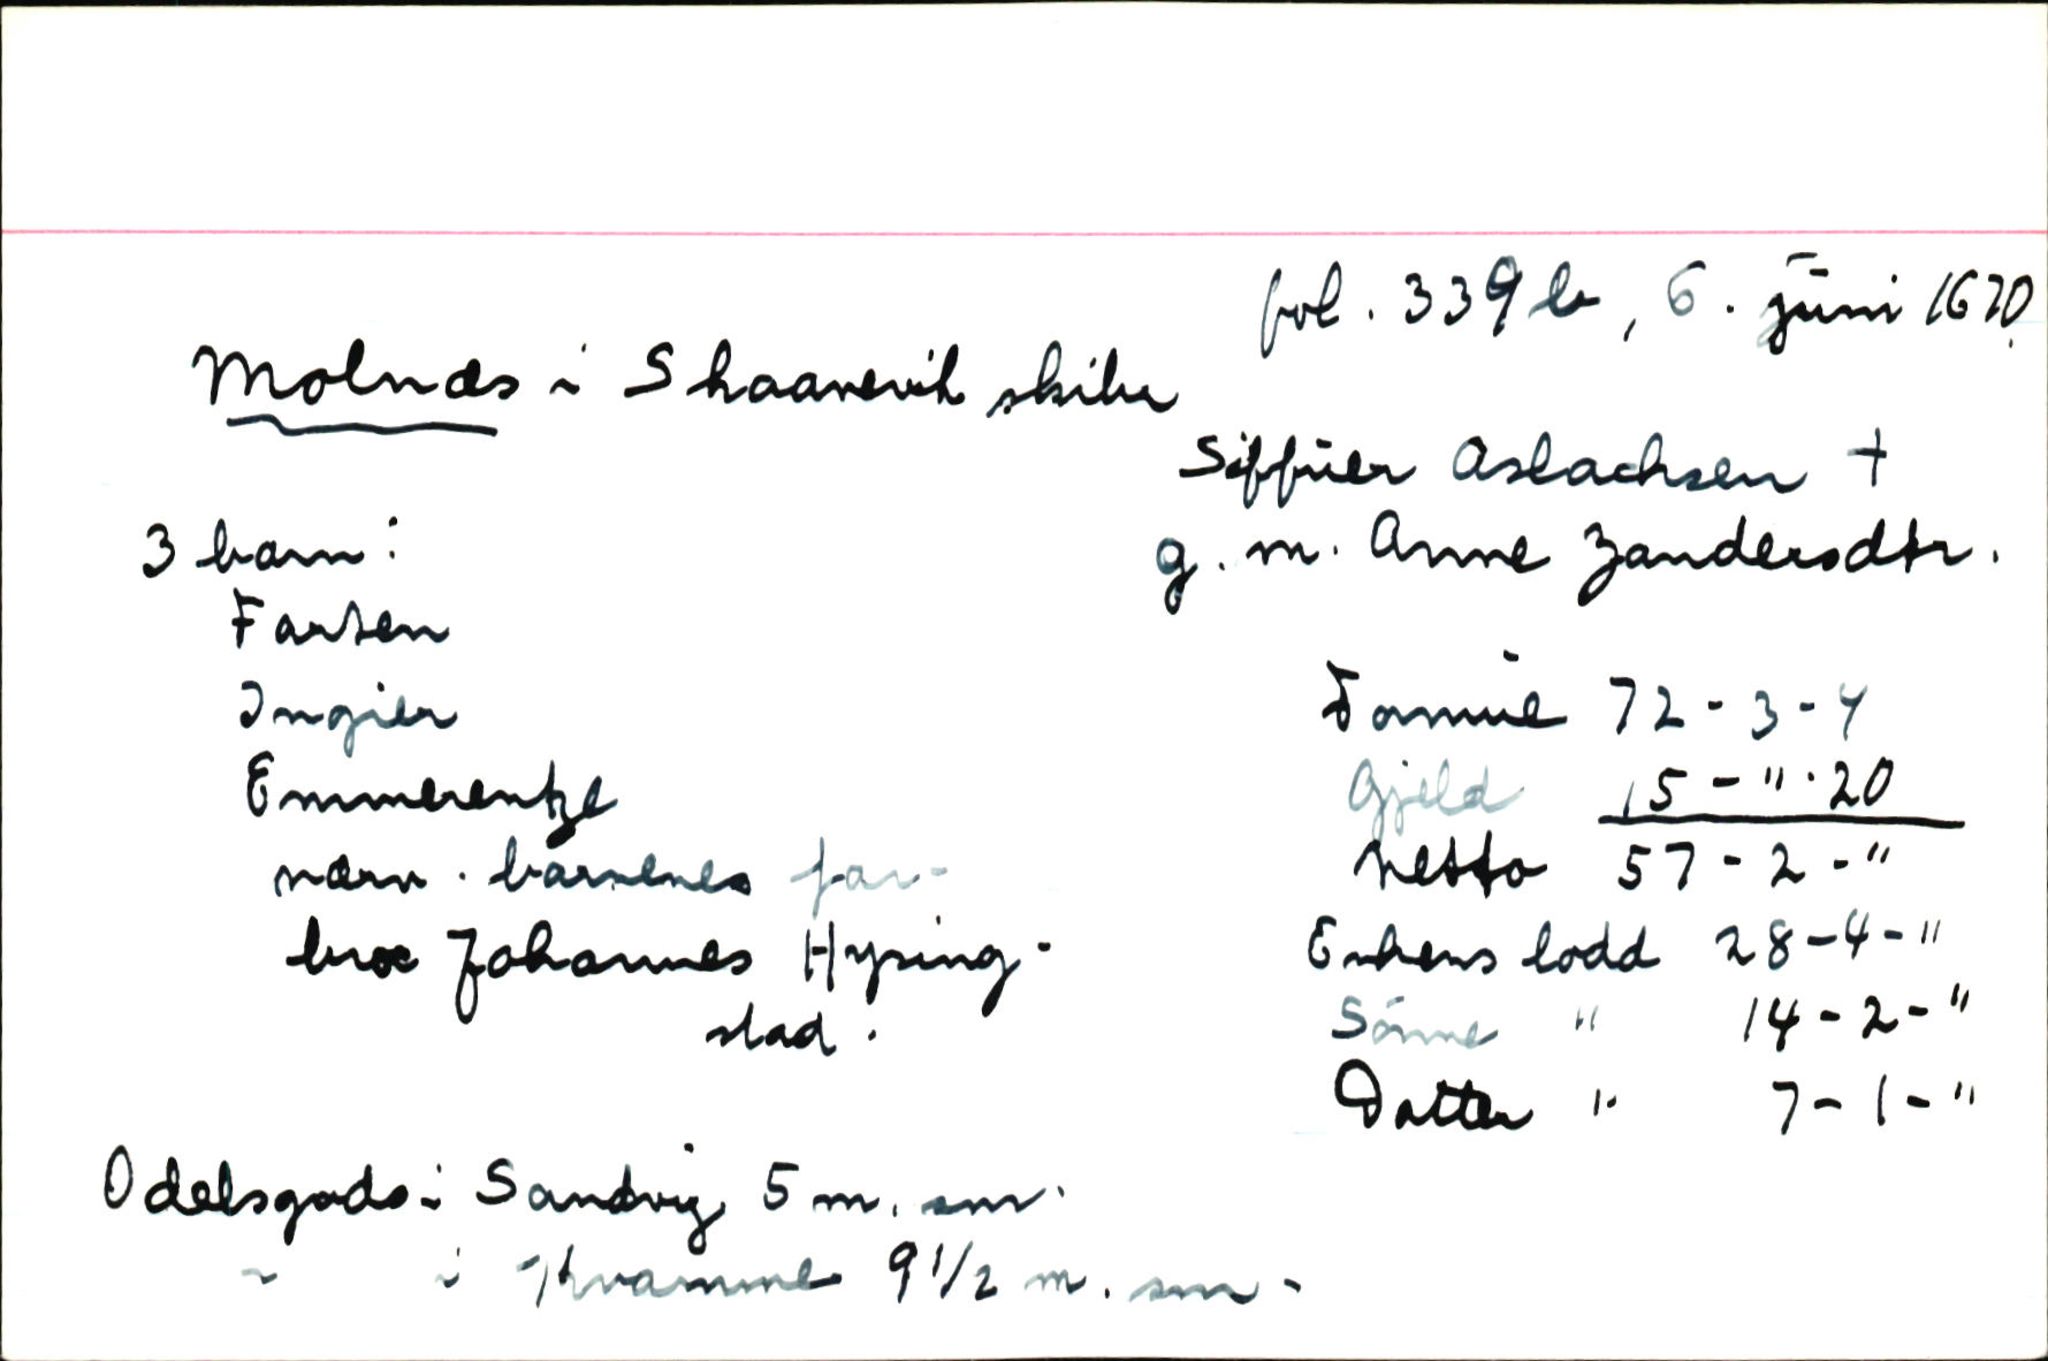 fol. 339 b, 6. juni 1670.
Molnæs i Skaanevik skibr
Siffuer Aslachsen +
g. m. Anne Zandersdtr.
3 barn:
Farten
Ingier
Emmerentze
nærv. barnenes far-
bror Johannes Hysing-
stad.
Formue 72 - 3 - 4
Gjeld 15 - " - 20
netto 57 - 2 - "
Enkens lodd 28 - 4 - "
Sönne " 14 - 2 - "
Datter " 7 - 1 - "
Odelsgods i Sandvig 5 m. sm.
" i Kvamme 9 1/2 m. sm.